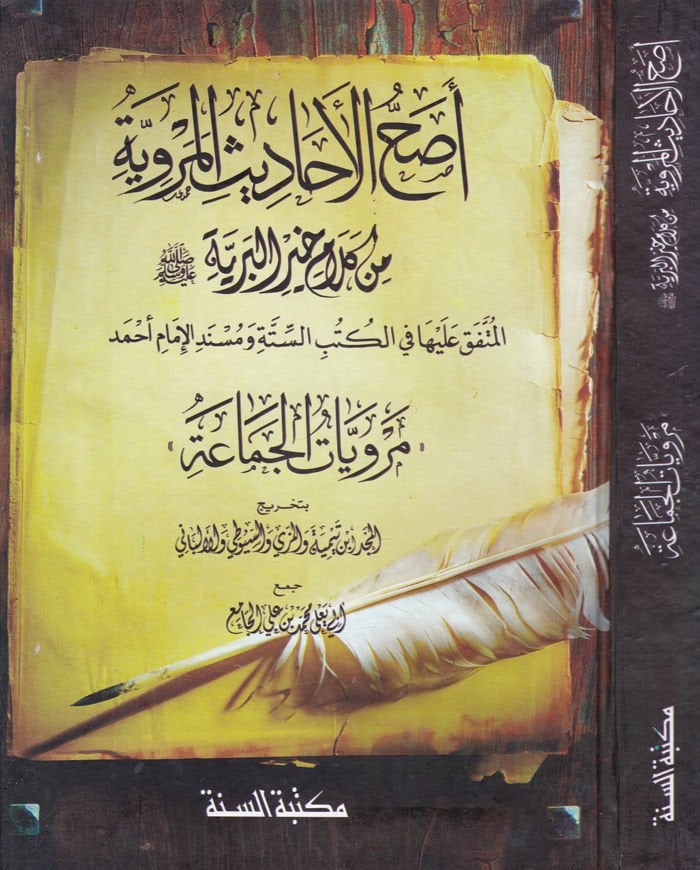 أَصَحُّ الأَحَادِيثِ المَرْوِيَّةِ
مِنْ كَلَامِ خَيْرِ البَرِيَّةِ ﷺ
المُتَّفَق عَلَيْهَا فِي الكُتُبِ السِّتَّةِ وَمُسْنَدِ الإِمَامِ أَحْمَد
«مَرْوِيَّاتُ الجَمَاعَةِ»
بتخريج
المجد ابن تيمية والمزي والسيوطي والألباني
جمع
أبي يعلى محمد بن علي الجامع
مكتبة السنة
أصح الأحاديث المروية
من كلام خير البرية ﷺ
«مرويات الجماعة»
مكتبة السنة